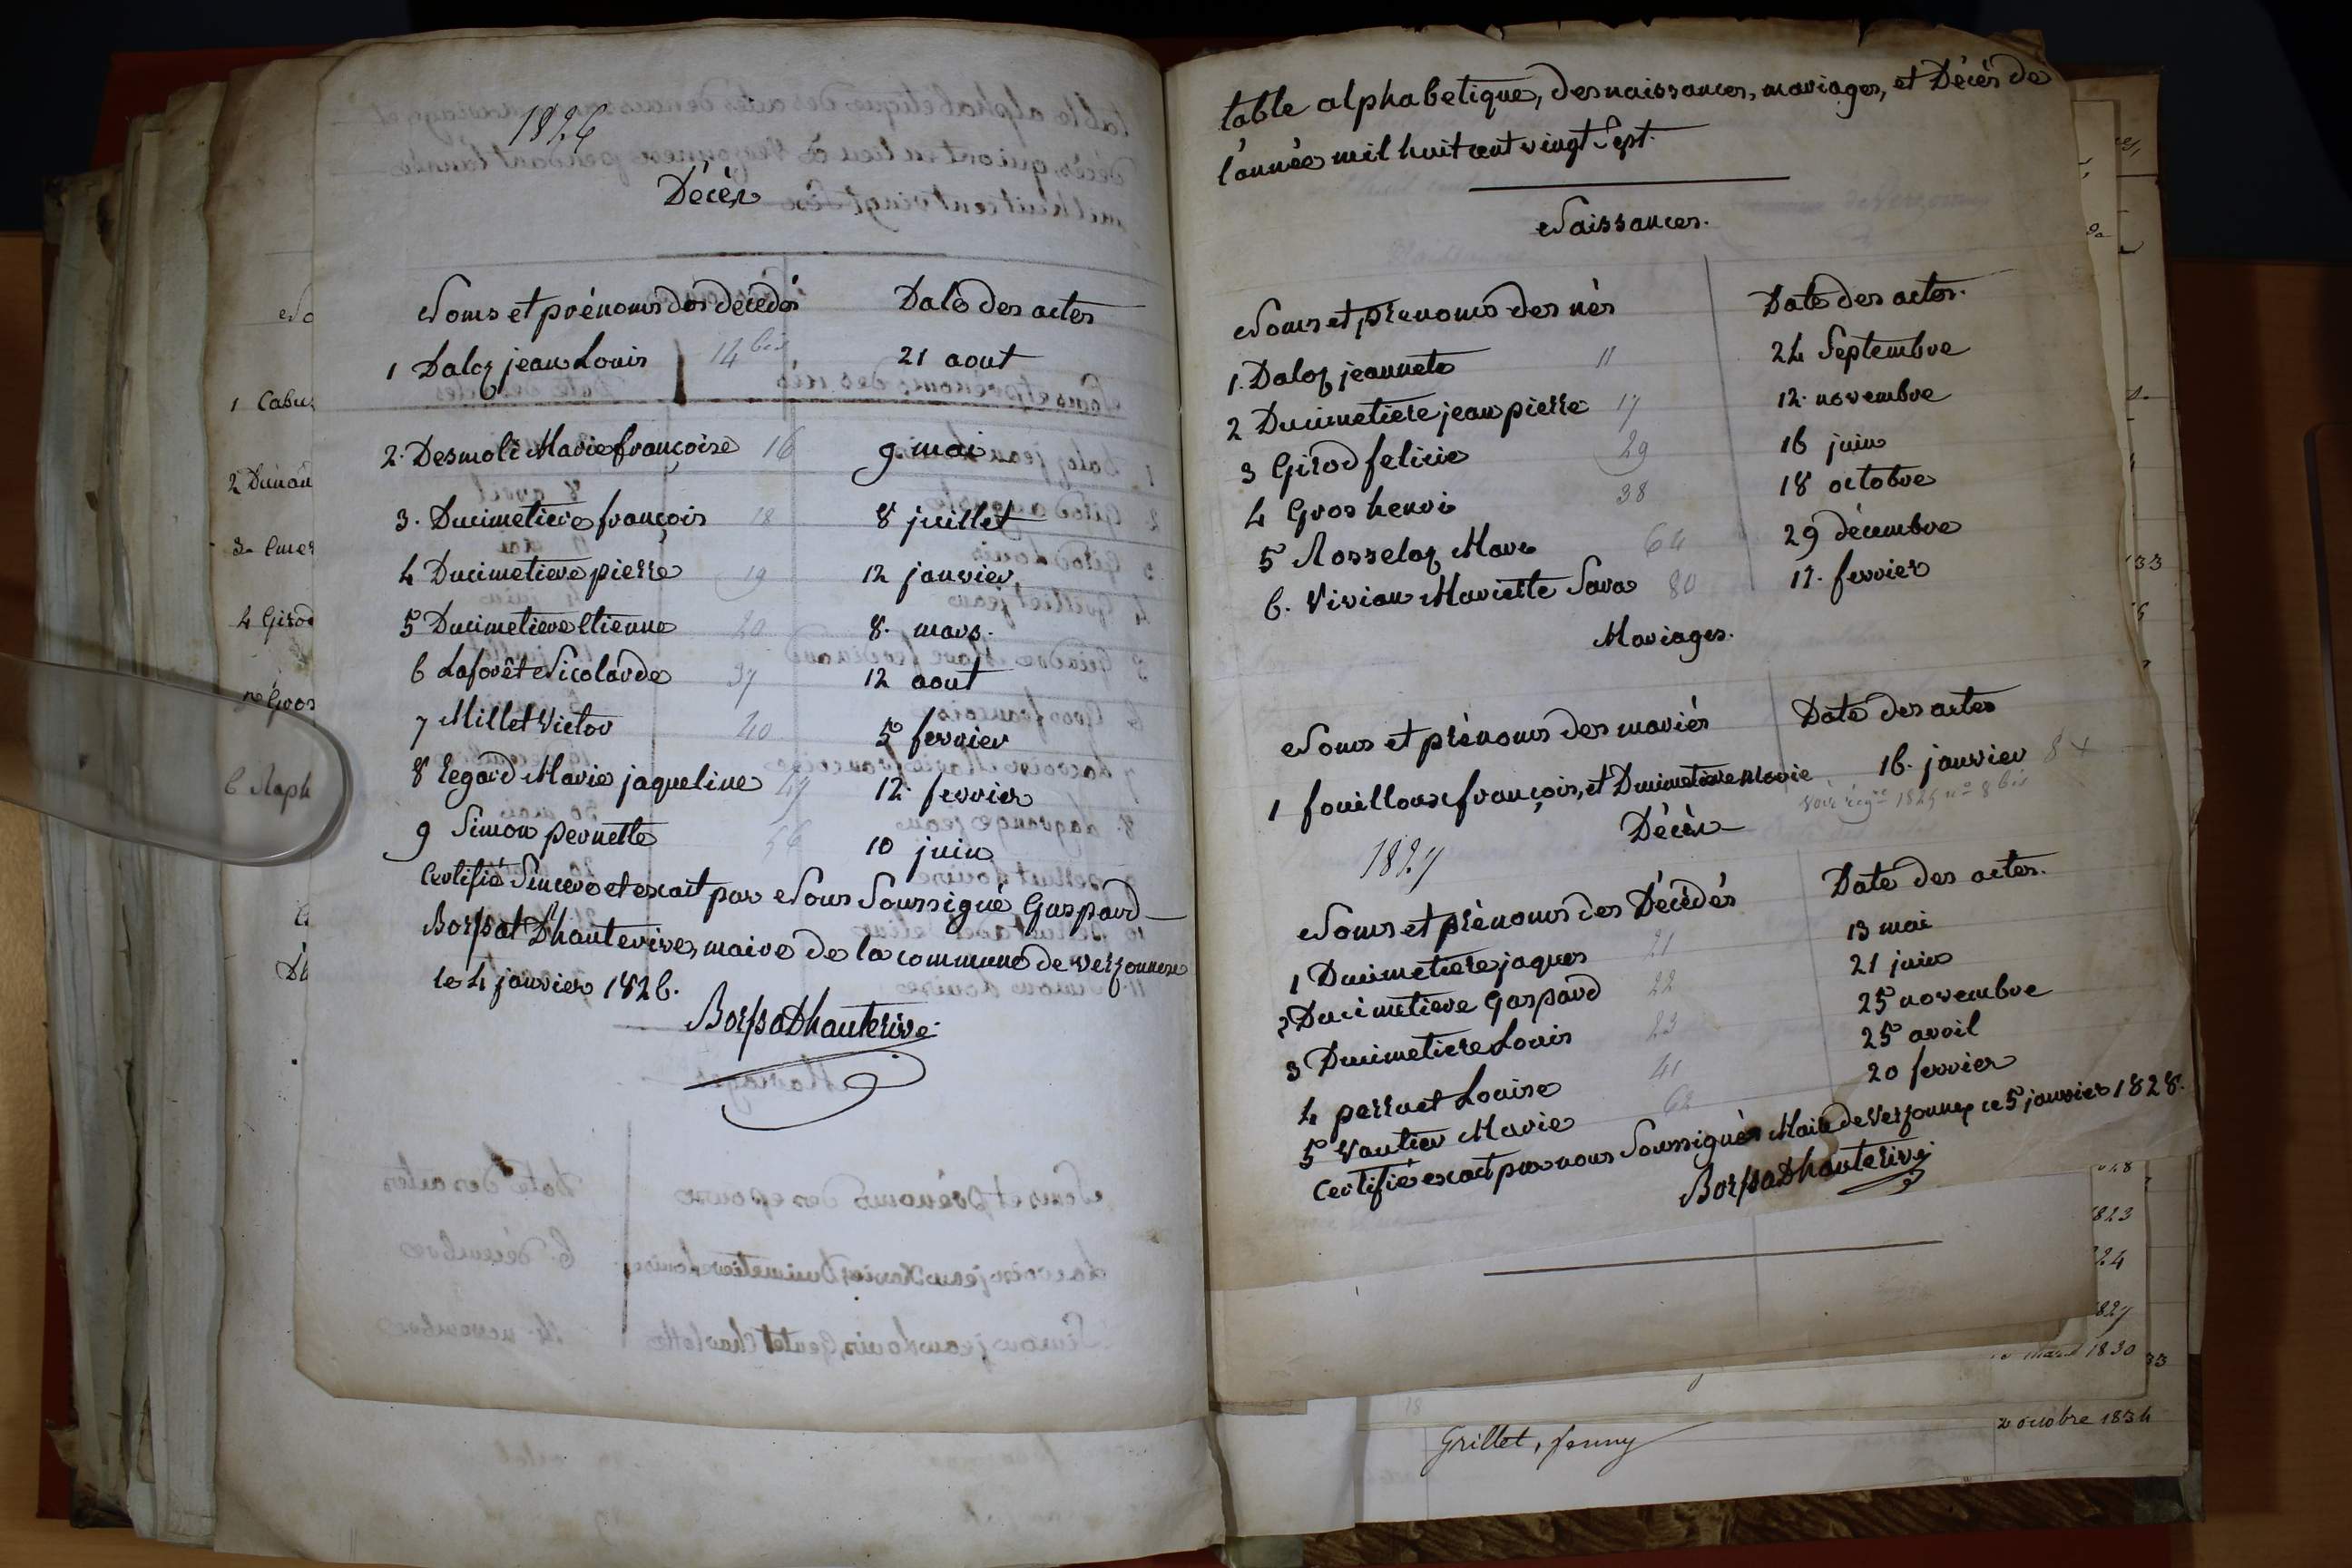 1826
Décès
Noms et prénoms des décédés Date des actes
1 Daloz jean Louis 14 bis 21 aout
2. Desmoli Marie françoise 16 9 mai
3. Ducimetiere françois 18 8 juillet
4 Ducimetiere pierre 19 12 janvier
5 Ducimetiere Etienne 20 8. mars.
6 Laforêt Nicolarde 37 12 aout
7 Millet Victor 40 5 fevrier
8 Regard Marie jaqueline 47 12. fevrier
9 Simon pernette 56 10 juin
Certifié Sincere et exact par Nous Soussigné Gaspard
Borssat D'hauterive, maire de la commune de Versonnex
le 4 janvier 1826.
BorssaDhauterive
table alphabetique, des naissances, mariages, et Décès de
l'année mil huit cent vingt Sept.
Naissances.
Noms et prenoms des nés Date des actes.
1. Daloz jeannete 11 24 Septembre
2 Ducimetiere jean pierre 17 12. novembre
3 Girod felicie 29 16 juin
4 Gros henri 38 18 octobre
5 Rosseloz Marc 64 29 décembre
6. Vivian Mariette Sara 80 17. fevrier
Mariages.
Noms et prénoms des mariés Date des actes
1 fouilloux françois, et Ducimetiere Marie 16. janvier 8
8 bis
Décès
1827
Noms et prénoms des Décédés Date des actes.
1 Ducimetiere jaques 21 13 mai
2 Ducimetiere Gaspard 22 21 juin
3 Ducimetiere Louis 23 25 novembre
4 perruet Louise 41 25 avril
5 Vautier Marie 62 20 fevrier
Certifié exact par nous Soussignés Maire de Versonnex ce 5 janvier 1828.
BorssaDhauterive
Grillet, fanny
octobre 1834
1 Cabus
4 Girod
5 Gros
6 Raph
1823
1827
1830
33